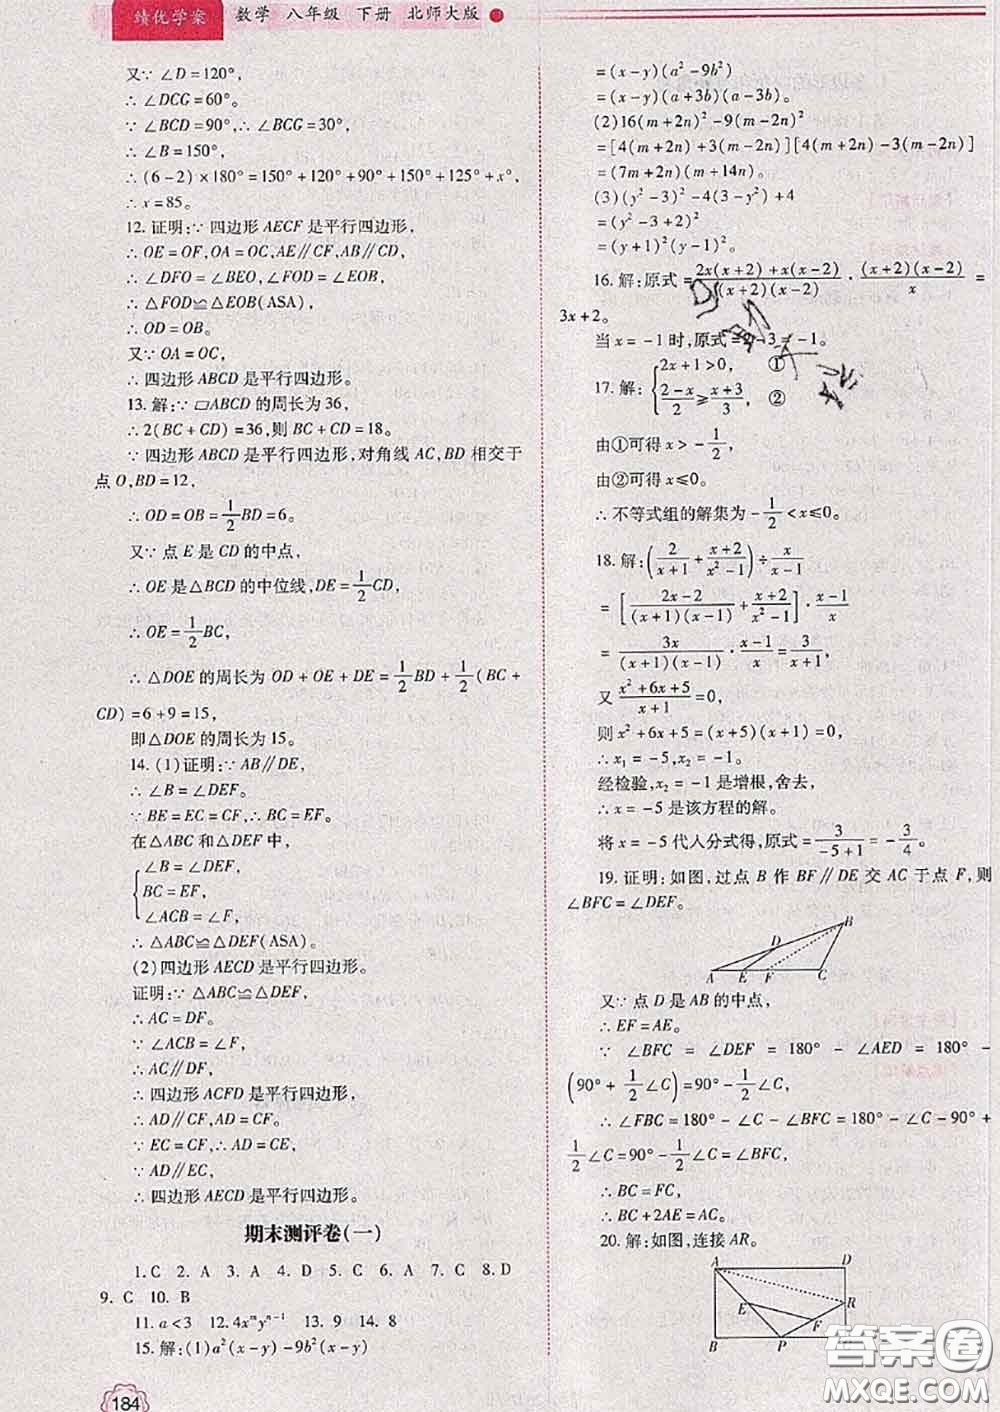 绩优学案 数学 八年级 下册 北师大版
又∵ ∠D=120°,
∴ ∠DCG=60°。
∵ ∠BCD=90°,∴ ∠BCG=30°,
∴ ∠B=150°,
∴ (6-2)×180°=150°+120°+90°+150°+125°+x°,
∴ x=85。
12.证明:∵ 四边形 AECF 是平行四边形,
∴ OE=OF,OA=OC,AE∥CF,AB∥CF,
∴ ∠DFO=∠BEO,∠FOD=∠EOB,
∴ △FOD≌△EOB(ASA),
∴ OD=OB。
又∵ OA=OC,
∴ 四边形 ABCD 是平行四边形。
13.解:∵ ▱ABCD 的周长为 36,
∴ 2(BC+CD)=36,则 BC+CD=18。
∵ 四边形 ABCD 是平行四边形,对角线 AC,BD 相交于
点 O,BD=12,
∴ OD=OB=1/2BD=6。
又∵ 点 E 是 CD 的中点,
∴ OE 是△BCD 的中位线,DE=1/2CD,
∴ OE=1/2BC,
∴ △DOE 的周长为 OD+OE+DE=1/2BD+1/2(BC+
CD)=6+9=15,
即△DOE 的周长为 15。
14.(1)证明:∵ AB∥DE,
∴ ∠B=∠DEF。
∵ BE=EC=CF,∴ BC=EF。
在△ABC 和△DEF 中,
∠B=∠DEF,
BC=EF,
∠ACB=∠F,
∴ △ABC≌△DEF(ASA)。
(2)四边形 AECD 是平行四边形。
证明:∵ △ABC≌△DEF,
∴ AC=DF。
∵ ∠ACB=∠F,
∴ AC∥DF,
∴ 四边形 ACFD 是平行四边形,
∴ AD∥CF,AD=CF。
∵ EC=CF,∴ AD=CE,
∵ AD∥EC,
∴ 四边形 AECD 是平行四边形。
期末测评卷(一)
1.C 2.A 3.A 4.D 5.C 6.A 7.C 8.D
9.C 10.B
11.a<3 12.4xᵐyⁿ⁻¹ 13.9 14.8
15.解:(1)a²(x-y)-9b²(x-y)
184
=(x-y)(a²-9b²)
=(x-y)(a+3b)(a-3b)。
(2)16(m+2n)²-9(m-2n)²
=[4(m+2n)+3(m-2n)][4(m+2n)-3(m-2n)]
=(7m+2n)(m+14n)。
(3)(y²-3)²-4(3-y²)+4
=(y²-3+2)²
=(y+1)²(y-1)²。
16.解:原式=(2x(x+2)+x(x-2))/((x+2)(x-2))·((x+2)(x-2))/x=
3x+2。
当 x=-1 时,原式=2-3=-1。
17.解: 2x+1>0, ①
(2-x)/2≥(x+3)/3, ②
由①可得 x>-1/2,
由②可得 x≤0。
∴ 不等式组的解集为-1/2<x≤0。
18.解:(2/(x+1)+(x+2)/(x²-1))÷x/(x-1)
=[(2x-2)/((x+1)(x-1))+(x+2)/(x²-1)]·(x-1)/x
=3x/((x+1)(x-1))·(x-1)/x=3/(x+1)。
又 (x²+6x+5)/(x+1)=0,
则 x²+6x+5=(x+5)(x+1)=0,
∴ x₁=-5,x₂=-1。
经检验,x₂=-1 是增根,舍去,
∴ x=-5 是该方程的解。
将 x=-5 代入分式得,原式=3/(-5+1)=-3/4。
19.证明:如图,过点 B 作 BF∥DE 交 AC 于点 F,则
∠BFC=∠DEF。
B
D
A E F C
又∵ 点 D 是 AB 的中点,
∴ EF=AE。
∵ ∠BFC=∠DEF=180°-∠AED=180°-
(90°+1/2∠C)=90°-1/2∠C,
∴ ∠FBC=180°-∠C-∠BFC=180°-∠C-90°+
1/2∠C=90°-1/2∠C=∠BFC,
∴ BC=FC,
∴ BC+2AE=AC。
20.解:如图,连接 AR。
A D
E R
F
B P
答案圈
MXQE.COM